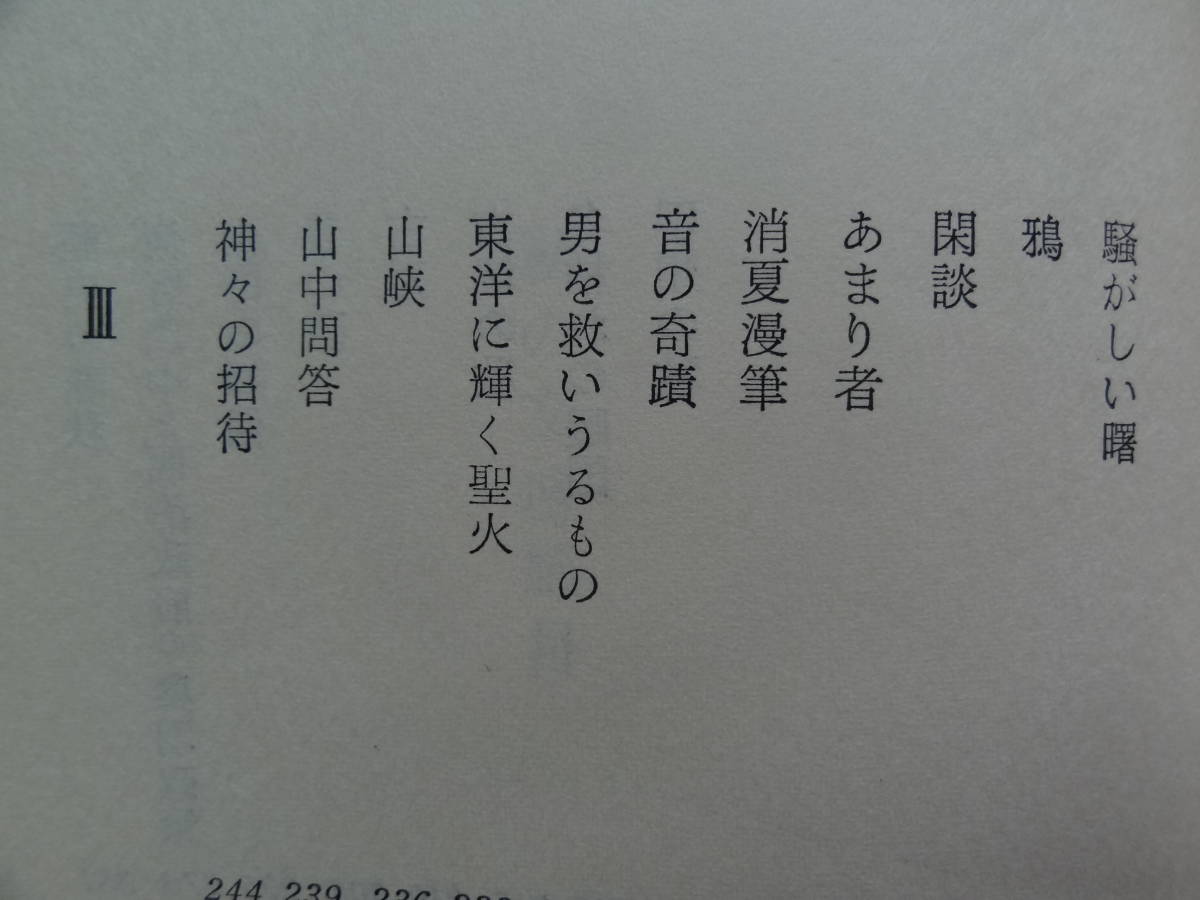 騒がしい曙
鴉
閑談
あまり者
消夏漫筆
音の奇蹟
男を救いうるもの
東洋に輝く聖火
山峡
山中問答
神々の招待
Ⅲ
244 239 236